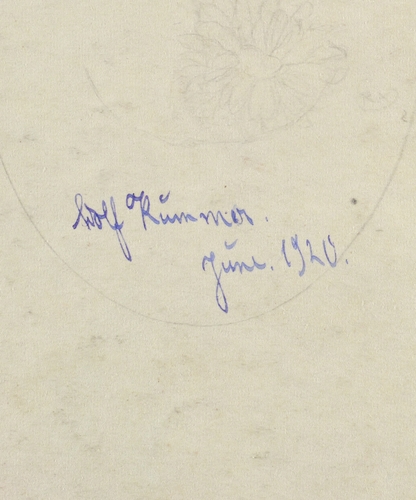 Wolf Kummer.
June. 1920.